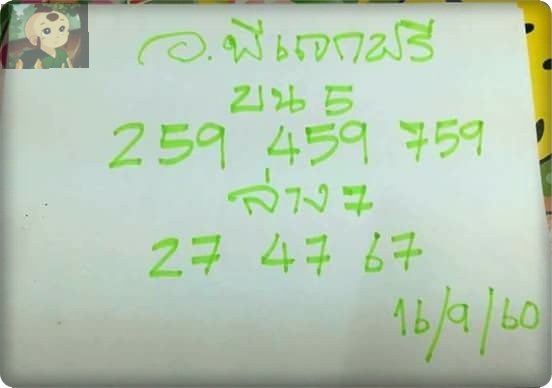 อ.พีแจกฟรี
บน 5
259 459 759
ล่าง 7
27 47 67
16/9/60